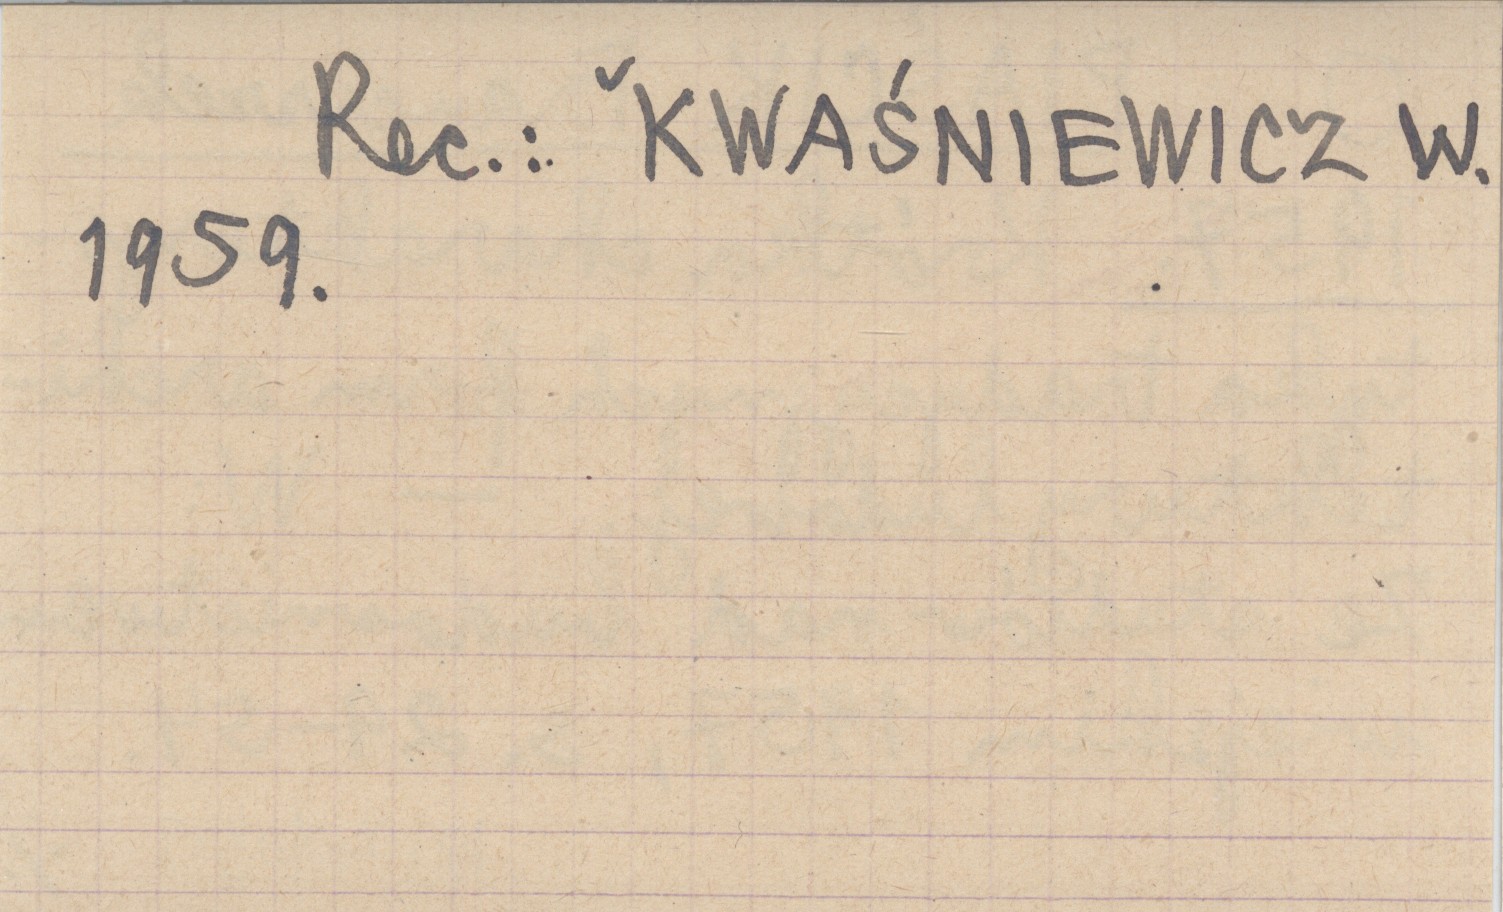 Rec.: ˇKWAŚNIEWICZ W.
1959.